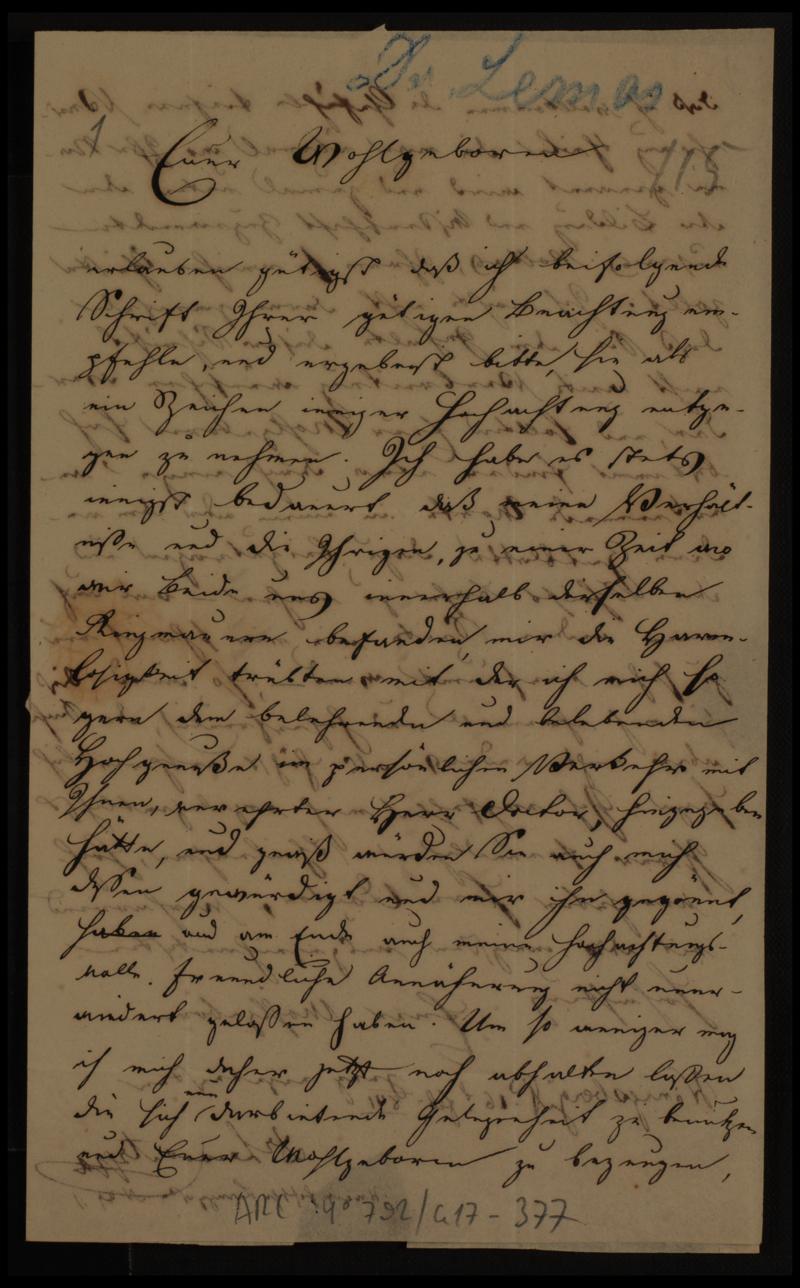 Dr. Lemos
1
Euer Wohlgeboren
113
erlauben gütigst daß ich beifolgende
Schrift Ihrer gütigen Beachtung em-
pfehle, und ergebenst bitte, sie als
ein Zeichen inniger Hochachtung entge-
gen zu nehmen. Ich habe es stets
innigst bedauert daß meine Verhält-
niße und die Ihrigen, zu einer Zeit wo
wir Beide uns innerhalb derselben
Ringmauern befanden, mir die Harm-
losigkeit trübten mit der ich mich so
gern dem belehrenden und belebenden
Hochgenuße im persönlichen Verkehr mit
Ihnen, verehrter Herr Doctor, hingegeben
hätte, und gewiß würden Sie auch mich
dessen gewürdigt und mir ihn gegönnt,
haben und am Ende auch meine hochachtungs-
volle freundliche Annäherung nicht uner-
wiedert gelassen haben. Um so weniger mag
ich mich daher jetzt noch abhalten lassen
die sich nun darbietende Gelegenheit zu benutzen
und Euer Wohlgeboren zu bezeugen,
ARC. 4° 792/G17-377